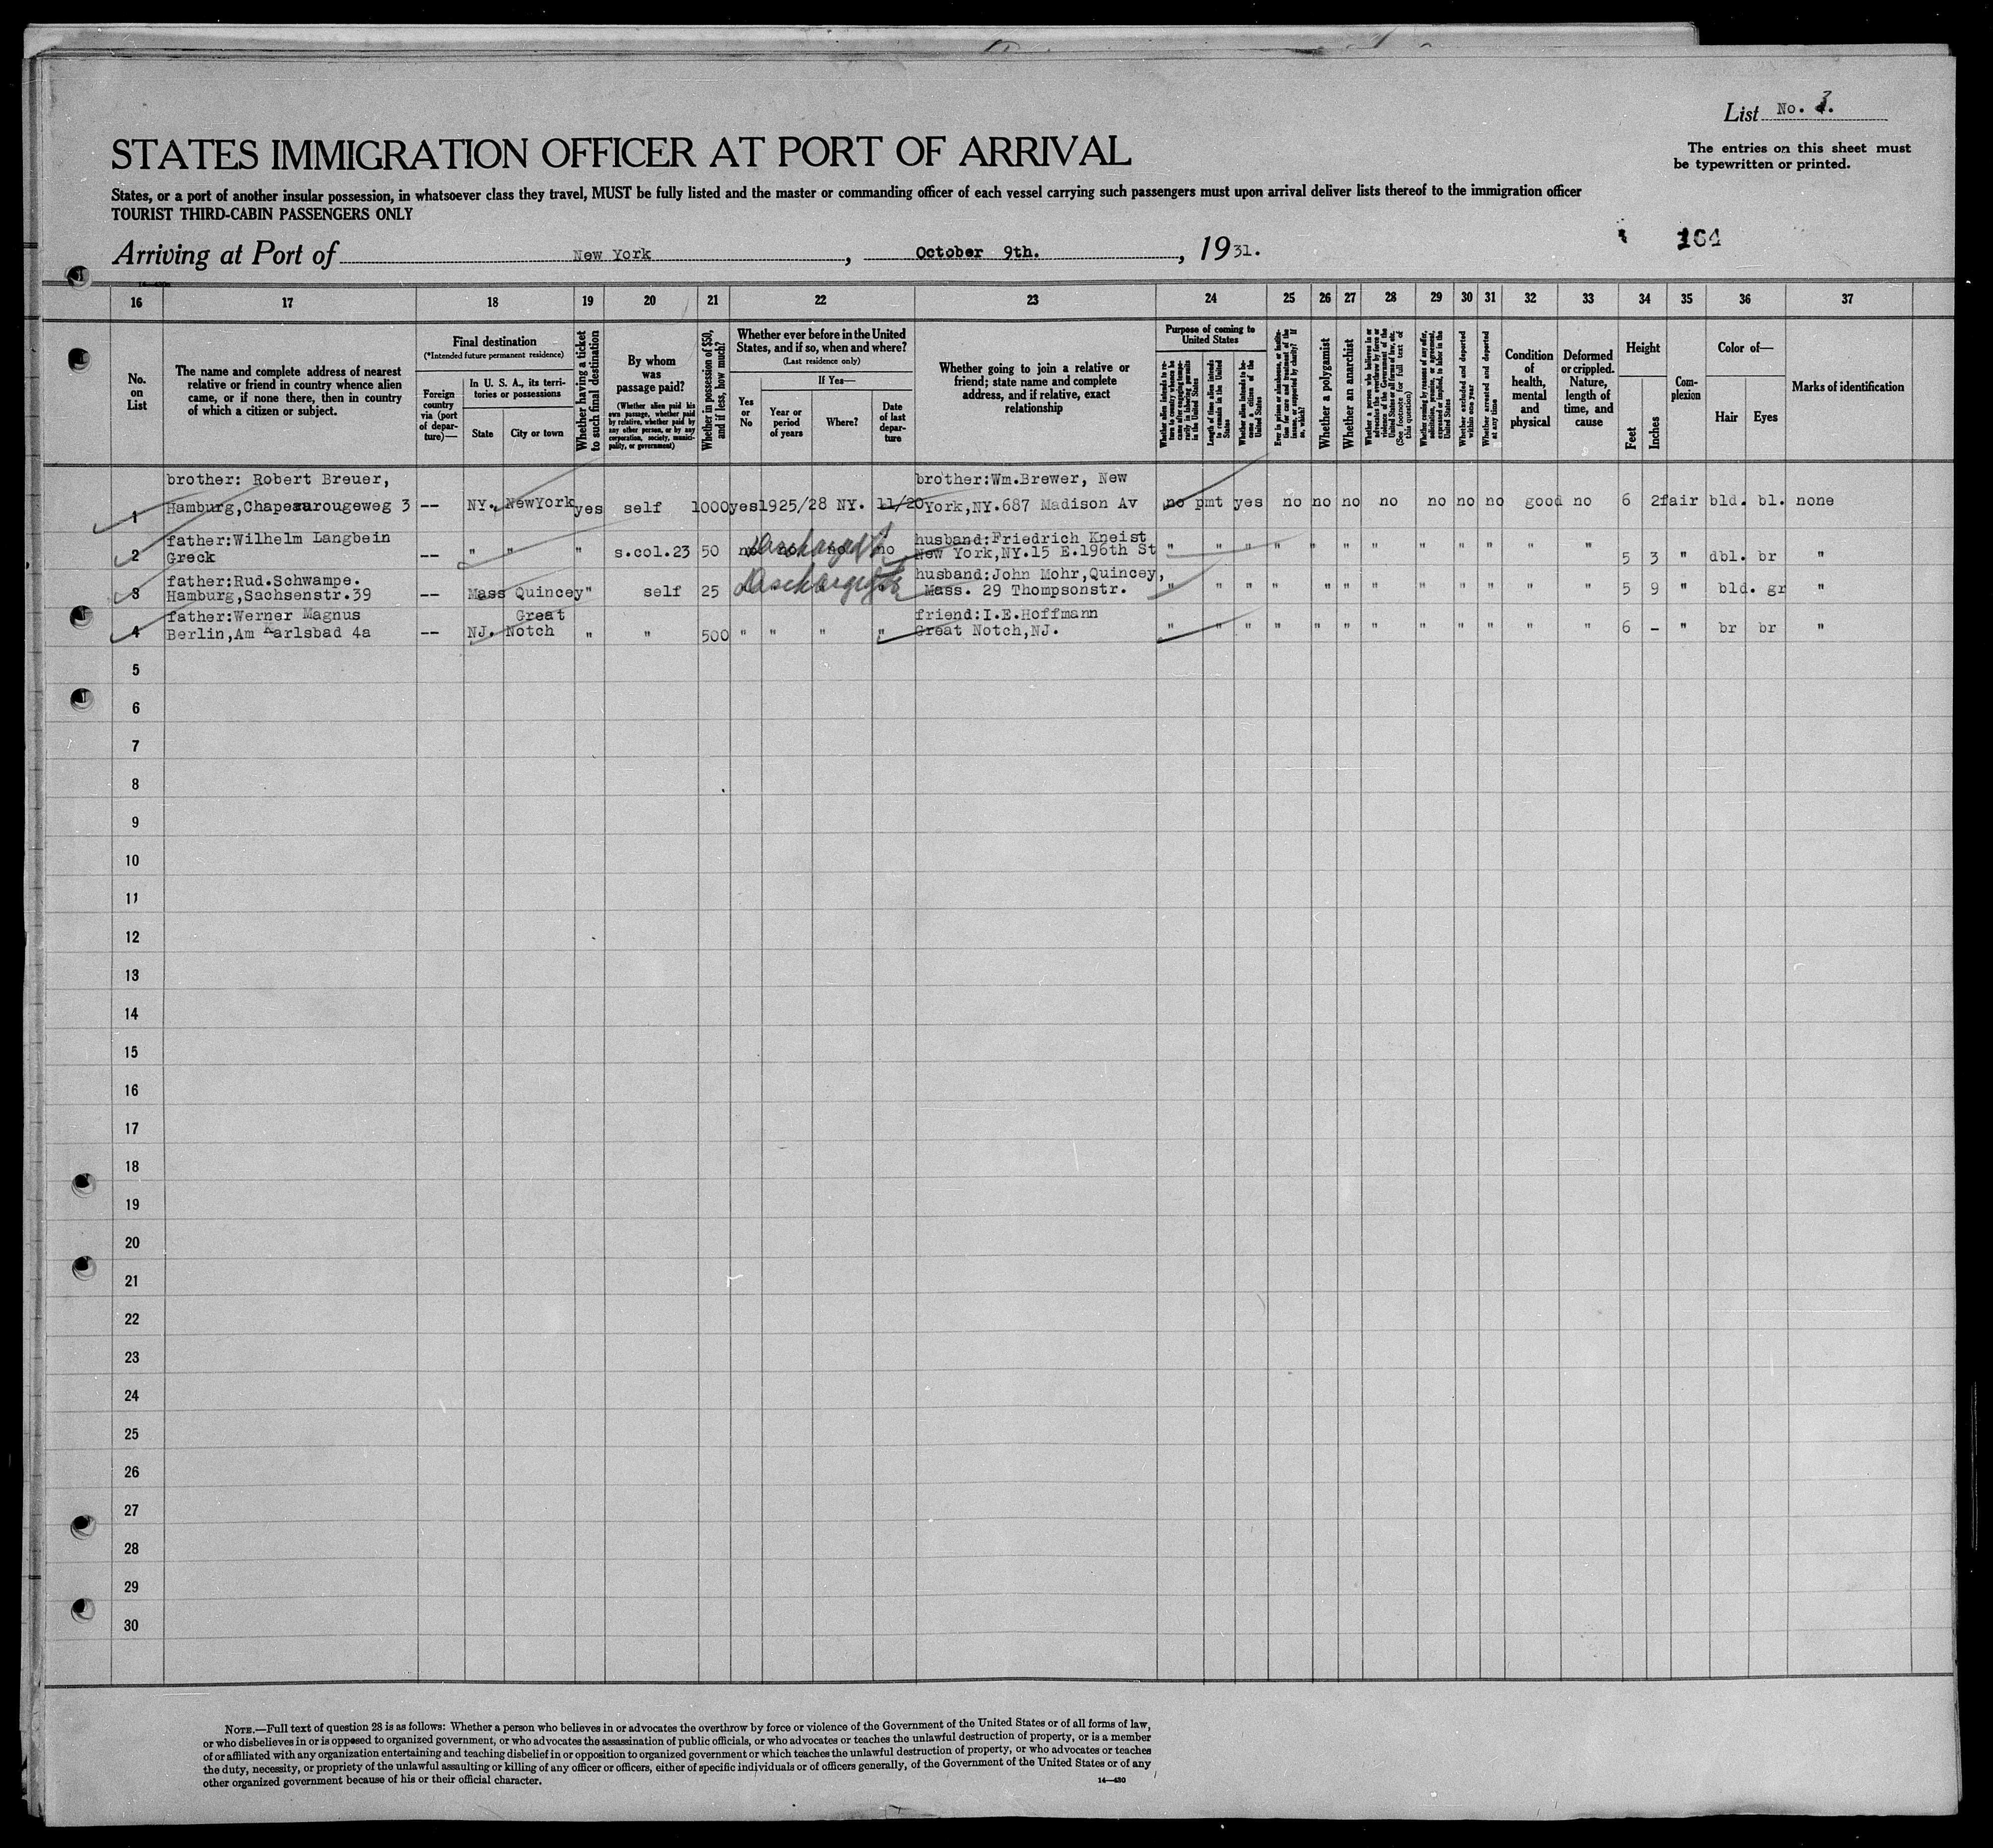 List No. 3.
STATES IMMIGRATION OFFICER AT PORT OF ARRIVAL
The entries on this sheet must
be typewritten or printed.
States, or a port of another insular possession, in whatsoever class they travel, MUST be fully listed and the master or commanding officer of each vessel carrying such passengers must upon arrival deliver lists thereof to the immigration officer
TOURIST THIRD-CABIN PASSENGERS ONLY
164
Arriving at Port of New York, October 9th., 1931.
16 17 18 19 20 21 22 23 24 25 26 27 28 29 30 31 32 33 34 35 36 37
No. on List
The name and complete address of nearest relative or friend in country whence alien came, or if none there, then in country of which a citizen or subject.
Final destination
(*Intended future permanent residence)
Foreign country via (port of departure)—
In U. S. A., its territories or possessions
State
City or town
Whether having a ticket to such final destination
By whom was passage paid?
(Whether alien paid his own passage, whether paid by relative, whether paid by any other person, or by any corporation, society, municipality, or government)
Whether in possession of $50, and if less, how much?
Whether ever before in the United States, and if so, when and where?
(Last residence only)
Yes or No
If Yes—
Year or period of years
Where?
Date of last departure
Whether going to join a relative or friend; state name and complete address, and if relative, exact relationship
Purpose of coming to United States
Whether alien intends to return to country whence he came after engaging temporarily in laboring pursuits in the United States
Length of time alien intends to remain in the United States
Whether alien intends to become a citizen of the United States
Ever in prison or almshouse, or institution for care and treatment of the insane, or supported by charity? If so, which?
Whether a polygamist
Whether an anarchist
Whether a person who believes in or advocates the overthrow by force or violence of the Government of the United States or all forms of law, etc. (See footnote for full text of this question)
Whether coming by reasons of any offer, solicitation, promise, or agreement, expressed or implied, to labor in the United States
Whether excluded and deported within one year
Whether arrested and deported at any time
Condition of health, mental and physical
Deformed or crippled. Nature, length of time, and cause
Height
Feet
Inches
Complexion
Color of—
Hair
Eyes
Marks of identification
brother: Robert Breuer, brother:Wm.Brewer, New
1 Hamburg,Chapeaurougeweg 3 -- NY. NewYork yes self 1000 yes 1925/28 NY. 11/20 York,NY.687 Madison Av no pmt yes no no no no no no no good no 6 2 fair bld. bl. none
father:Wilhelm Langbein Discharged husband:Friedrich Kneist
2 Greck -- " " " s.col.23 50 no no no no New York,NY.15 E.196th St " " " " " " " " " " " " 5 3 " dbl. br "
father:Rud.Schwampe. Discharged husband:John Mohr,Quincey,
3 Hamburg,Sachsenstr.39 -- Mass Quincey " self 25 Mass. 29 Thompsonstr. " " " " " " " " " " " " 5 9 " bld. gr "
father:Werner Magnus Great friend:I.E.Hoffmann
4 Berlin,Am Karlsbad 4a -- NJ. Notch " " 500 " " " " Great Notch,NJ. " " " " " " " " " " " " 6 - " br br "
5
6
7
8
9
10
11
12
13
14
15
16
17
18
19
20
21
22
23
24
25
26
27
28
29
30
NOTE.—Full text of question 28 is as follows: Whether a person who believes in or advocates the overthrow by force or violence of the Government of the United States or of all forms of law,
or who disbelieves in or is opposed to organized government, or who advocates the assassination of public officials, or who advocates or teaches the unlawful destruction of property, or is a member
of or affiliated with any organization entertaining and teaching disbelief in or opposition to organized government or which teaches the unlawful destruction of property, or who advocates or teaches
the duty, necessity, or propriety of the unlawful assaulting or killing of any officer or officers, either of specific individuals or of officers generally, of the Government of the United States or of any
other organized government because of his or their official character.
14—430